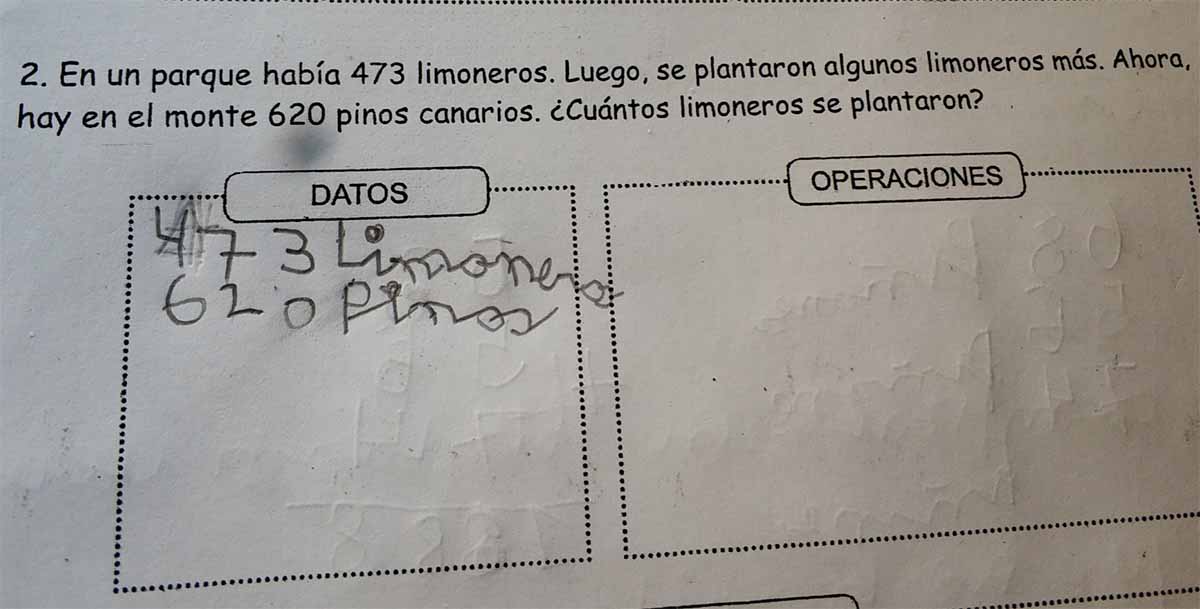 2. En un parque había 473 limoneros. Luego, se plantaron algunos limoneros más. Ahora,
hay en el monte 620 pinos canarios. ¿Cuántos limoneros se plantaron?
DATOS
OPERACIONES
473 Limoneros
620 Pinos